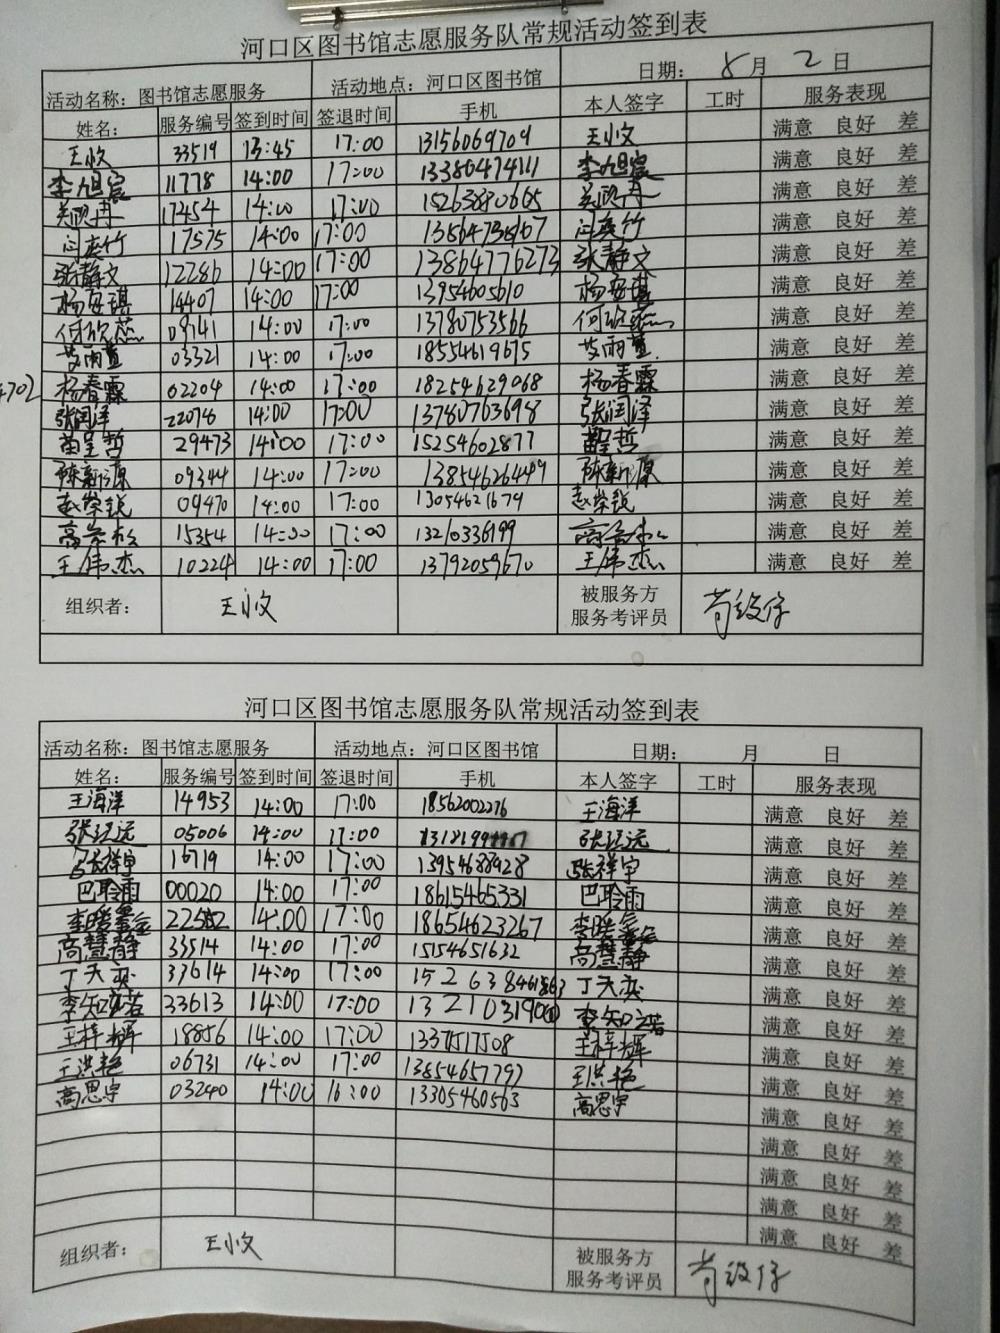 河口区图书馆志愿服务队常规活动签到表
活动名称：图书馆志愿服务 活动地点：河口区图书馆 日期： 8月 2日
姓名： 服务编号 签到时间 签退时间 手机 本人签字 工时 服务表现
33519 13:45 17:00 13156069709 满意 良好 差
李旭宸 11778 14:00 17:00 13380474111 李旭宸 满意 良好 差
17454 14:00 17:00 15263880665 满意 良好 差
闫奕竹 17575 14:00 17:00 闫奕竹 满意 良好 差
张静文 12286 14:00 17:00 13864776273 张静文 满意 良好 差
杨安琪 14407 14:00 17:00 13954605610 杨安琪 满意 良好 差
何欣蕊 09141 14:00 17:00 13780753566 何欣蕊 满意 良好 差
03321 14:00 17:00 18554619675 满意 良好 差
杨春霖 02204 14:00 17:00 18254629068 杨春霖 满意 良好 差
张润泽 22078 14:00 17:00 13780763698 张润泽 满意 良好 差
苗呈哲 29473 14:00 17:00 15254602877 苗呈哲 满意 良好 差
陈新源 09344 14:00 17:00 13854626449 陈新源 满意 良好 差
赵荣锐 09470 14:00 17:00 13054621679 赵荣锐 满意 良好 差
15354 14:00 17:00 13210336199 满意 良好 差
王伟杰 10224 14:00 17:00 13792059670 王伟杰 满意 良好 差
组织者： 被服务方
服务考评员
河口区图书馆志愿服务队常规活动签到表
活动名称：图书馆志愿服务 活动地点：河口区图书馆 日期： 月 日
姓名： 服务编号 签到时间 签退时间 手机 本人签字 工时 服务表现
王海洋 14953 14:00 17:00 18562002276 王海洋 满意 良好 差
05006 14:00 17:00 满意 良好 差
张祥宇 16719 14:00 17:00 13954688928 张祥宇 满意 良好 差
巴聆雨 00020 14:00 17:00 18615465331 巴聆雨 满意 良好 差
14:00 17:00 18654623267 满意 良好 差
高慧静 33514 14:00 17:00 15154651632 高慧静 满意 良好 差
丁天奕 33614 14:00 17:00 丁天奕 满意 良好 差
李知诺 23613 14:00 17:00 李知诺 满意 良好 差
王梓辉 18856 14:00 17:00 13375151508 王梓辉 满意 良好 差
王洪艳 06731 14:00 17:00 13854657797 王洪艳 满意 良好 差
高思宇 03240 14:00 16:00 13305460563 高思宇 满意 良好 差
满意 良好 差
满意 良好 差
满意 良好 差
满意 良好 差
组织者： 被服务方
服务考评员